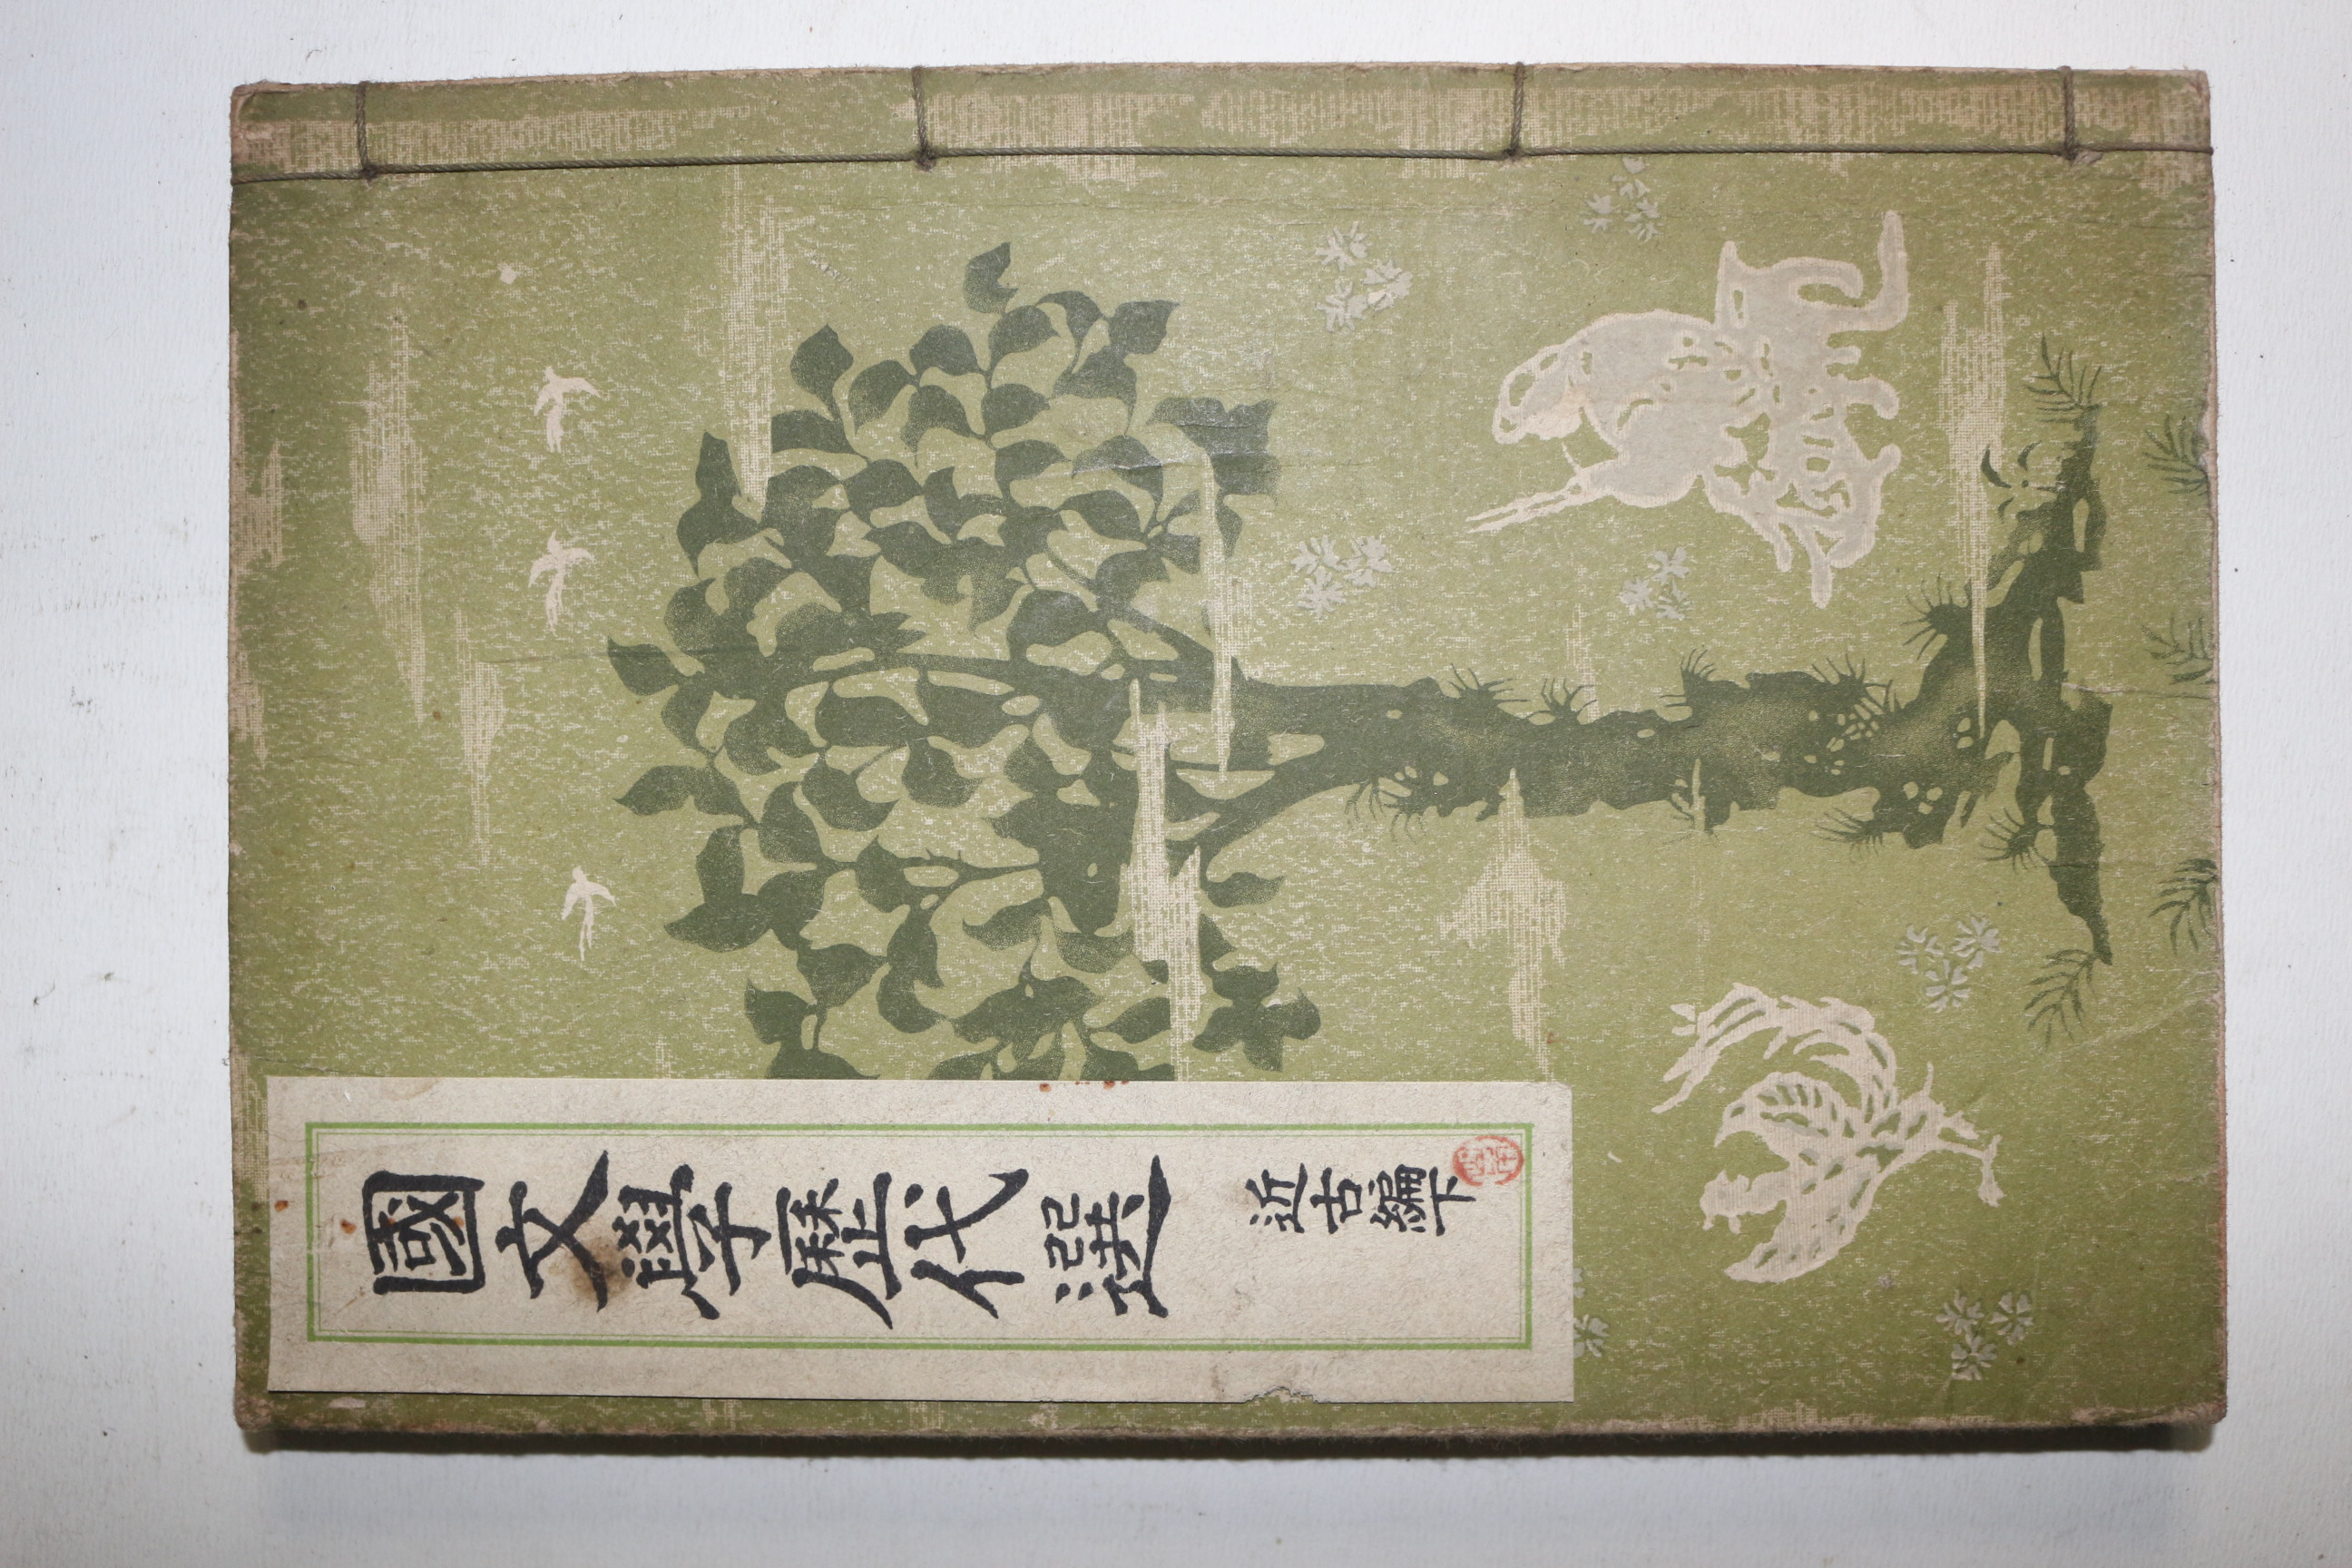 國文學歷代選
近古編下